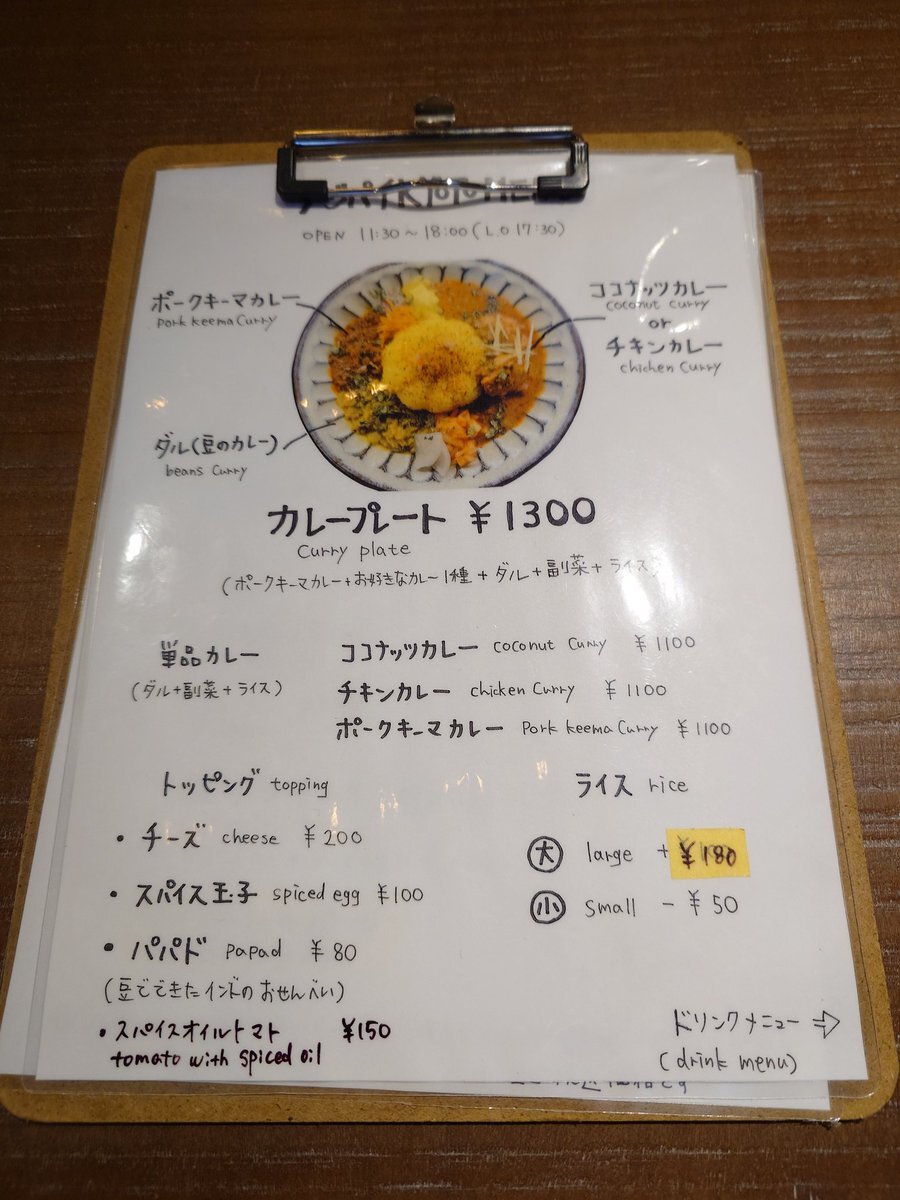 OPEN 11:30～18:00 (L.O 17:30)
ポークキーマカレー
pork keema curry
ココナッツカレー
coconut curry
or
チキンカレー
chicken curry
ダル(豆のカレー)
beans curry
カレープレート ¥1300
Curry plate
(ポークキーマカレー+お好きなカレー1種+ダル+副菜+ライス)
単品カレー
(ダル+副菜+ライス)
ココナッツカレー coconut curry ¥1100
チキンカレー chicken curry ¥1100
ポークキーマカレー pork keema curry ¥1100
トッピング topping
・チーズ cheese ¥200
・スパイス玉子 spiced egg ¥100
・パパド papad ¥80
(豆でできたインドのおせんべい)
・スパイスオイルトマト ¥150
tomato with spiced oil
ライス rice
大 large +¥180
小 small -¥50
ドリンクメニュー⇒
(drink menu)